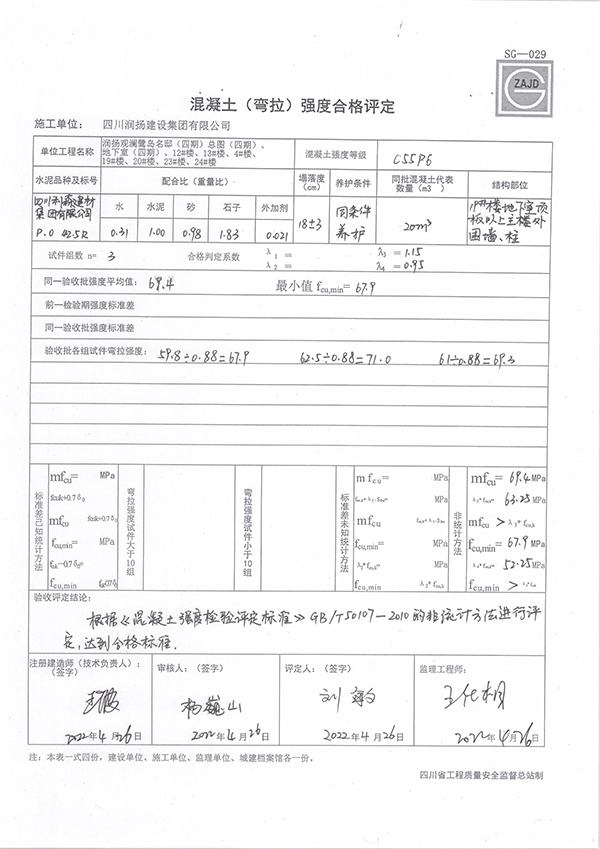 SG—029
ZAJD
混凝土（弯拉）强度合格评定
施工单位： 四川润扬建设集团有限公司
单位工程名称 润扬观澜鹭岛名邸（四期）总图（四期）、地下室（四期）、12#楼、13#楼、4#楼、19#楼、20#楼、23#楼、24#楼 混凝土强度等级 C55P6
水泥品种及标号 配合比（重量比） 塌落度（cm） 养护条件 同批混凝土代表数量（m3 ） 结构部位
集团有限公司 水 水泥 砂 石子 外加剂 18±3 同条件养护 20m³ 楼地下室顶板以上主楼外围墙、柱
P.O 42.5R 0.31 1.00 0.98 1.83 0.021
试件组数 n= 3 合格判定系数 λ1 = λ3 = 1.15
λ2 = λ4 = 0.95
同一验收批强度平均值： 69.4 最小值 fcu,min= 67.9
前一检验期强度标准差
同一验收批强度标准差
验收批各组试件弯拉强度： 59.8÷0.88=67.9 62.5÷0.88=71.0 61÷0.88=69.3
标准差已知统计方法
mfcu= MPa
fcuk+0.7δ0
mfcu fcuk+0.7δ0
fcu,min= MPa
fcuk-0.7δ0=
fcu,min
弯拉强度试件大于10组
弯拉强度试件小于10组
标准差未知统计方法
mfcu= MPa
MPa
mfcu
fcu,min= MPa
λ2*fcu,k= MPa
fcu,min λ2*fcu,k
非统计方法
mfcu= 69.4 MPa
λ3*fcu,k= 63.25 MPa
mfcu > λ3*fcu,k
fcu,min= 67.9 MPa
λ4*fcu,k= 52.25 MPa
fcu,min >
验收评定结论：
根据《混凝土强度检验评定标准》GB/T50107—2010的非统计方法进行评
定，达到合格标准.
注册建造师（技术负责人）：（签字） 审核人：（签字） 评定人：（签字） 监理工程师：
杨巍山 刘
2022年4月26日 2022年4月26日 2022年4月26日 2022年4月26日
注：本表一式四份，建设单位、施工单位、监理单位、城建档案馆各一份。
四川省工程质量安全监督总站制